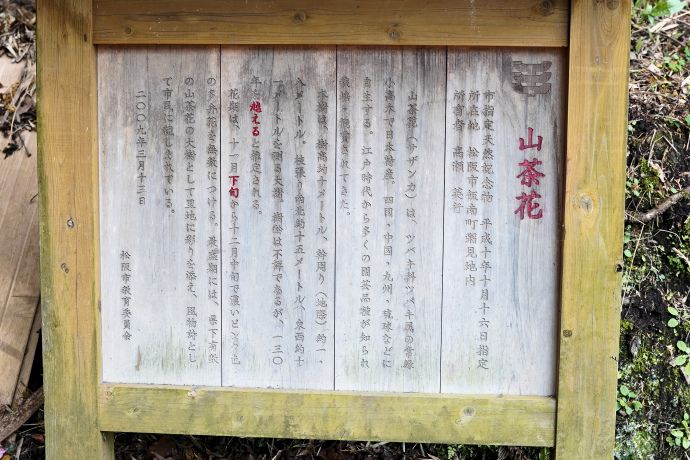 山茶花
市指定天然記念物 平成十年十月十六日指定
所在地 松阪市飯南町粥見地内
所有者 高瀬 英行
山茶花（サザンカ）は、ツバキ科ツバキ属の常緑
小高木で日本特産。四国・中国・九州・琉球などに
自生する。江戸時代から多くの園芸品種が知られ
栽培・観賞されてきた。
本樹は、樹高約十メートル、幹周り（地際）約一・
八メートル。枝張り南北約十五メートル、東西約十
一メートルを測る大樹。樹齢は不詳であるが、一三〇
年を越えると推定される。
花期は、十一月下旬から十二月中旬で濃いピンク色
の多弁花を無数につける。最盛期には、県下有数
の山茶花の大樹として里地に彩りを添え、風物詩とし
て市民に親しまれている。
二〇〇九年三月十三日
松阪市教育委員会